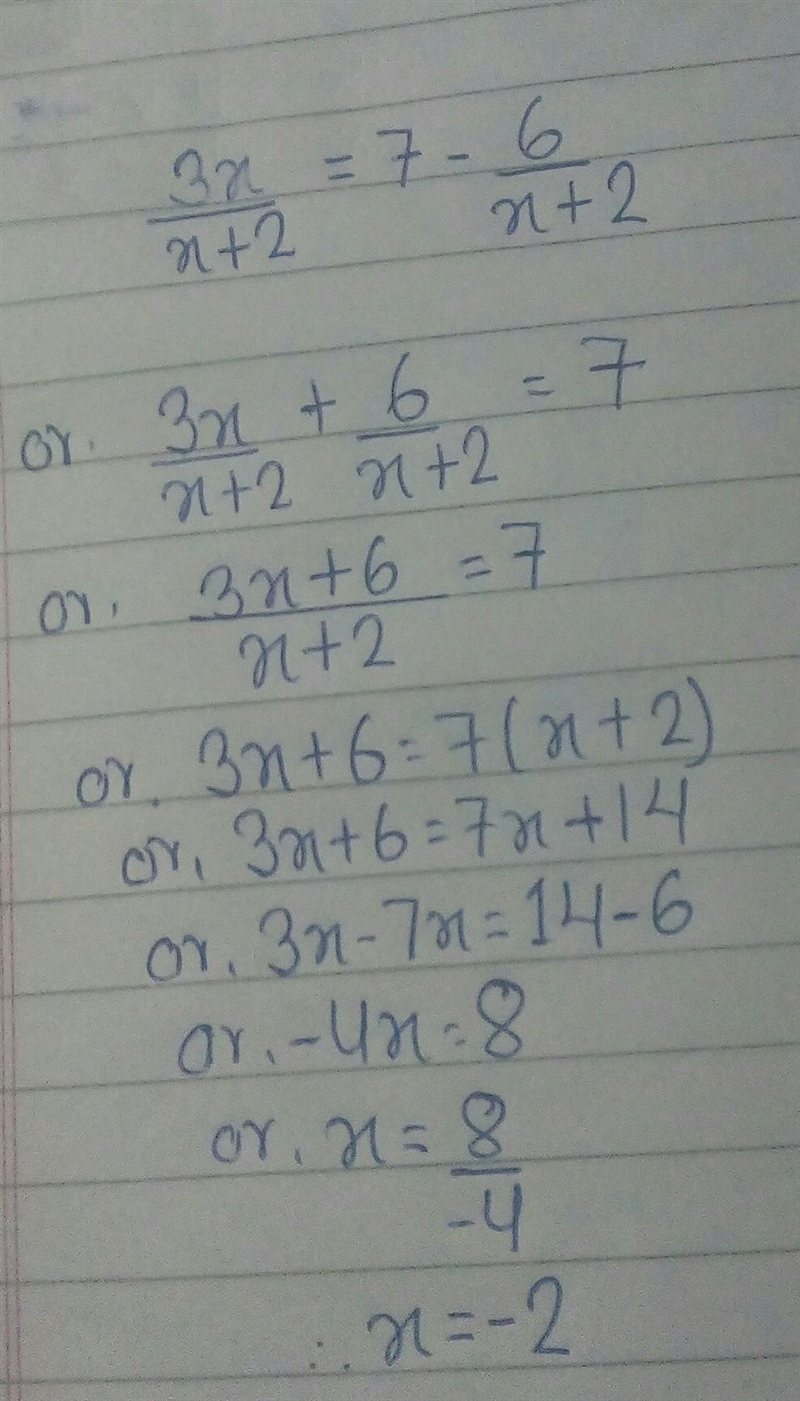 3x/x+2 = 7 - 6/x+2
or. 3x/x+2 + 6/x+2 = 7
or. 3x+6/x+2 = 7
or. 3x+6 = 7(x+2)
or, 3x+6 = 7x+14
or, 3x-7x = 14-6
or, -4x = 8
or, x = 8/-4
∴ x = -2